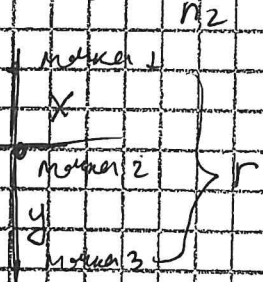 n2
точка 1
x
точка 2
r
y
точка 3